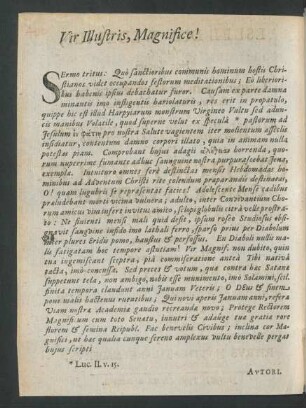 Vir Illustris, Magnifice!
Sermo tritus: Quò sanctioribus communis hominum hostis Chri-
stianos videt occupandos festorum meditationibus; Eò liberiori-
bus habenis ipsius debachatur furor. Causam ex parte damna
minantis imò instigentis hariolaturis, res erit in propatulo,
quippe hic est illud Harpyarum monstrum Virgineo Vultu sed adun-
cis manibus Volatile, quod superat velut ex speculâ * pastorum ad
Jesulum pro nostra Salute vagientem iter molientum assecla
insidiatur, contentum damnum corpori illato, qvia in animam nulla
potestas
runt nuperrimè fumante adhuc sangvine nostra purpurascebat Jena,
exempla. Incuitur omnes ferè destinatas mensis Hebdomadas ho-
minibus ad Adventum Christi ritè colendum praeparandis destinatas,
O! quam lugubris se repraesentat facies! Adolescente Mense vadibus
praeludebant mortui vicina vulnera; adulto, inter Convivantium Cho-
rum amicus vim infert invitus amico,
Ne fluenti mensi mali quid desit, ipsum roseo Studiosus obsi-
gnavit sangvine infido imo lathali ferro, sparso prius per Diabolum
inter plures Eridis pomo, haustus & perfossus. En Diaboli nulla ma-
lis fatigatam hoc tempore astutiam! Vir Magnif. non dubito, quin
tua ingemiscant sceptra, pià commiseratione antea Tibi nativâ
tacta, imò concussa. Sed preces & votum, quae contra has Satanae
suppetunt tela, non ambigo, nobis esse munimento, imò Salamini, sol.
finita tempora claudunt anni Januam Veteris; O DEus & finem
pone malis hactenus ruentibus! Qui novi aperis Januam anni, refera
Viam nostra Academia gaudio recreanda novo; Protege Rectorem
Magnif. um cum toto Senatu, innutri & adauge tua gratia rore
florem & semina Reipubl. Fac benevelis Civibus; inclina cor Ma-
gnifici, ut hac qualiacunque serena amplexus vultu benevelle pergat
hujus scripti
* Luc. II. v. 15.
AVTORI.